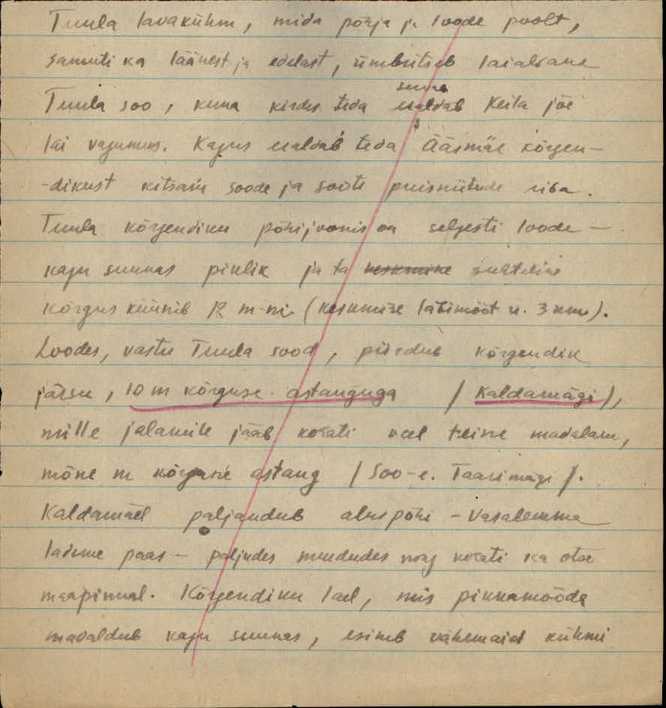 Tuula lavakühm, mida põhja ja loode poolt,
samuti ka läänest ja edelast, ümbritseb laialdane
Tuula soo, kuna kirdes teda suure eraldab Keila jõe
lai vagumus. Kagus eraldab teda Ääsmäe kõrgen-
-dikust kitsam soode ja soote puisniitude riba.
Tuula kõrgendiku põhijoonis on selgesti loode-
kagu suunas piklik ja ta keskmine suhteline
kõrgus küünib 12 m-ni (keskmise läbimõõt u. 3 km).
Loodes, vastu Tuula sood, piirdub kõrgendik
järsu, 10 m kõrguse astanguga (Kaldamägi),
mille jalamile jääb korati veel teine madalam,
mõne m kõrgune astang (Soo-e. Taarimägi).
Kaldamäel paljandub aluspõhi - Vasalemma
lademe paas - paljudes murdudes ning korati ka otse
maapinnal. Kõrgendiku lael, mis pikkamööda
madaldub kagu suunas, esineb vähemaid kühmi